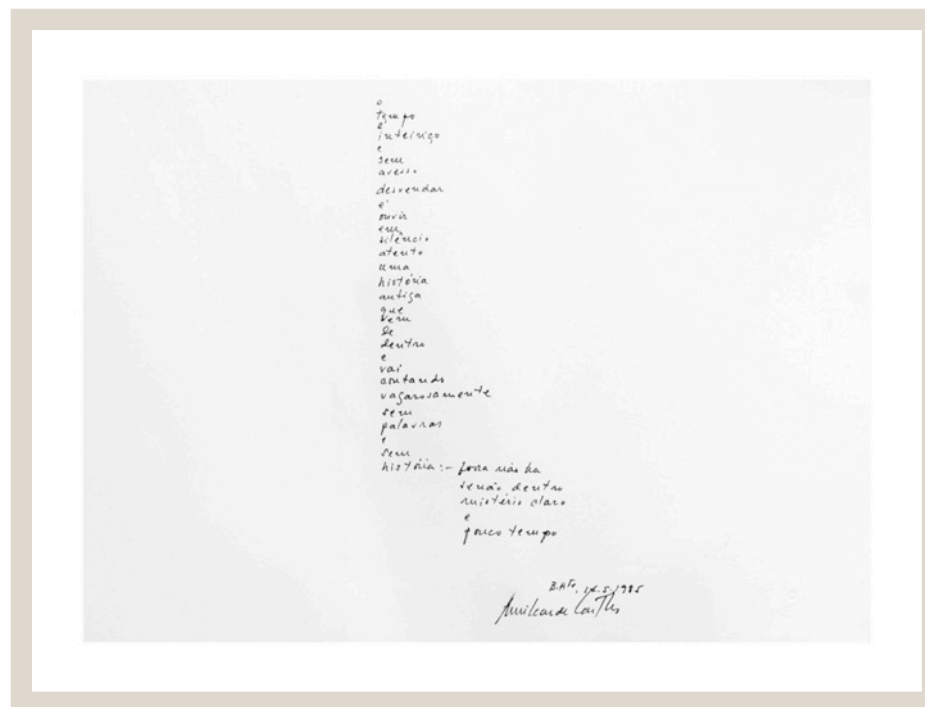 o
tempo
é
inteiriço
e
sem
avesso
desvendar
é
ouvir
em
silêncio
atento
uma
história
antiga
que
vem
de
dentro
e
vai
contando
vagarosamente
sem
palavras
e
sem
história:- fora não ha
senão dentro
mistério claro
e
pouco tempo
B.Hte, 5.1985
Amilcar de Castro